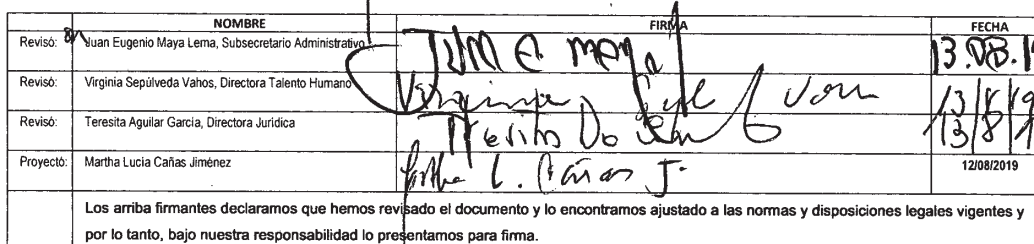 NOMBRE FIRMA FECHA
Revisó: Juan Eugenio Maya Lema, Subsecretario Administrativo 13.08.1
Revisó: Virginia Sepúlveda Vahos, Directora Talento Humano Virginia 13/8/19
Revisó: Teresita Aguilar García, Directora Jurídica 13/8/1
Proyectó: Martha Lucía Cañas Jiménez L. Cañas J. 12/08/2019
Los arriba firmantes declaramos que hemos revisado el documento y lo encontramos ajustado a las normas y disposiciones legales vigentes y
por lo tanto, bajo nuestra responsabilidad lo presentamos para firma.